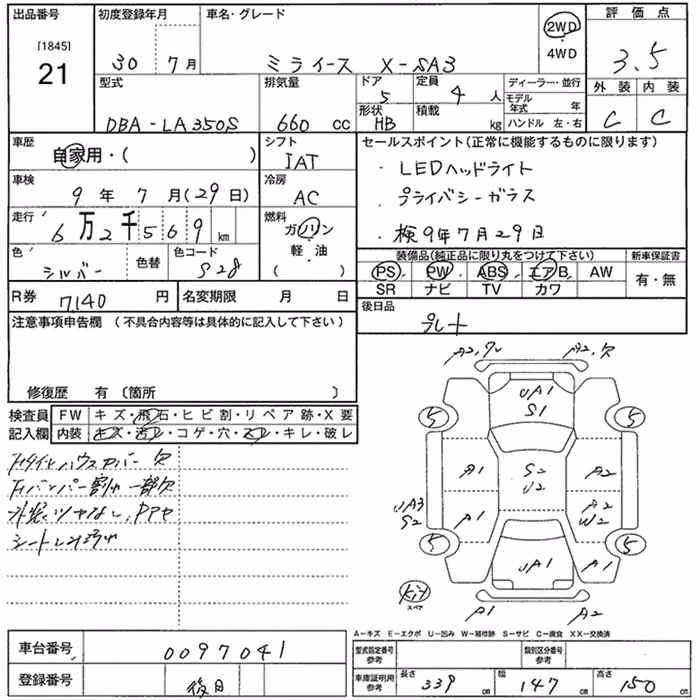 出品番号
[1845]
21
初度登録年月
30 7月
車名・グレード
ミライース X-SA3
2WD
4WD
評価点
3.5
外装 内装
C C
型式
DBA-LA350S
排気量
660 CC
ドア
5
定員
4 人
形状
HB
積載
kg
ディーラー・並行
モデル年式 年
ハンドル 左・右
車歴
自家用・( )
シフト
IAT
セールスポイント(正常に機能するものに限ります)
・LEDヘッドライト
・プライバシーガラス
・検9年7月29日
車検
9年7月(29日)
冷房
AC
走行
6万2千569km
燃料
ガソリン
軽・油
( )
色
シルバー
色替
色コード
S28
装備品(純正品に限り丸をつけて下さい)
PS PW ABS エアB AW
SR ナビ TV カワ
新車保証書
有・無
R券 7140 円
名変期限 月 日
後日品
プレート
注意事項申告欄 (不具合内容等は具体的に記入して下さい)
修復歴 有〔箇所 〕
検査員記入欄
FW キズ・飛石・ヒビ割・リペア跡・X要
内装 キズ・汚レ・コゲ・穴・スレ・キレ・破レ
欠
Fバンパー割レ 一部欠
シート
A2, A2,欠
UA1
S1
5 5
A1 S2 U2 A2
UA3
S2
A1 A2
W2
5 5
UA1 A1
Kit
スペア
A1 A2
A-キズ E-エクボ U-凹み W-補修跡 S-サビ C-腐食 XX-交換済
車台番号 0097041
登録番号 後日
型式指定番号
参考
類別区分番号
参考
車庫証明用
参考
長さ 339 cm
幅 147 cm
高さ 150 cm